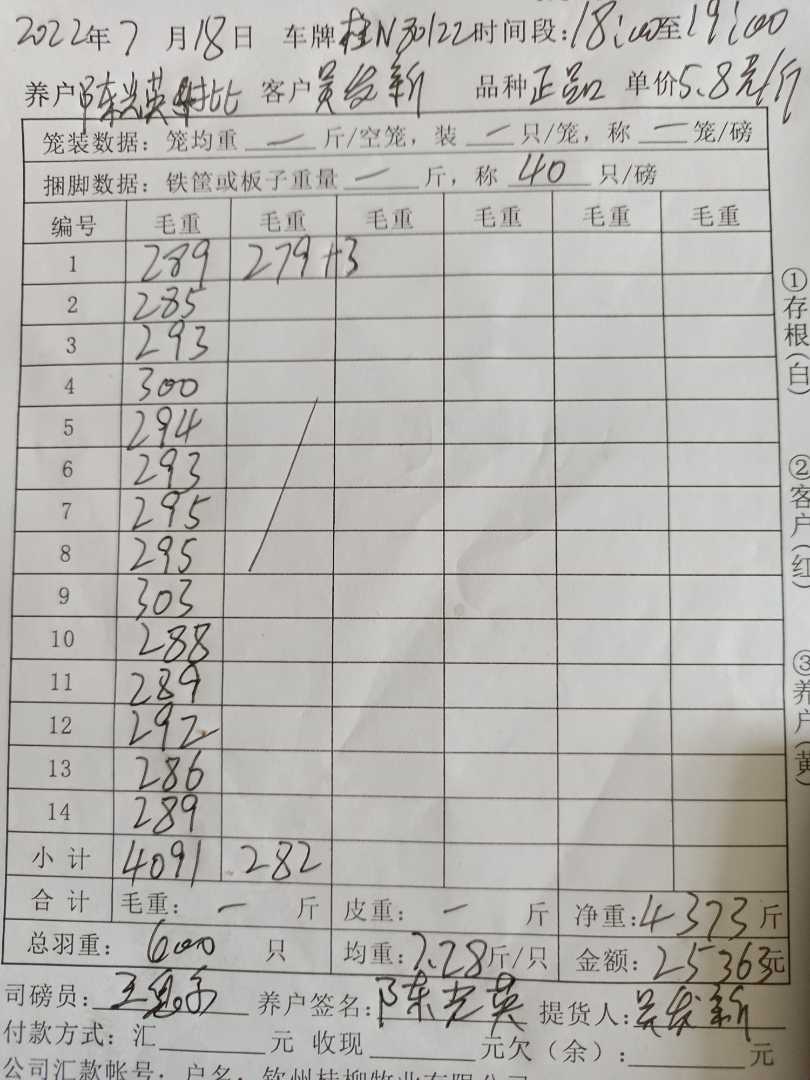 2022年7月18日 车牌桂N30122时间段:18:00至19:00
养户陈光英 客户吴发新 品种正品 单价5.8元/斤
笼装数据: 笼均重 — 斤/空笼, 装 — 只/笼, 称 — 笼/磅
捆脚数据: 铁筐或板子重量 — 斤, 称 40 只/磅
编号 毛重 毛重 毛重 毛重 毛重 毛重
1 289 279+3
2 285
3 293
4 300
5 294
6 293
7 295
8 295
9 303
10 288
11 289
12 292
13 286
14 289
小计 4091 282
合计 毛重: — 斤 皮重: — 斤 净重: 4373 斤
总羽重: 600 只 均重: 7.28斤/只 金额: 25363元
司磅员: 养户签名: 陈光英 提货人: 吴发新
付款方式: 汇 元 收现 元欠(余): 元
公司汇款帐号: 户名: 钦州桂柳牧业有限公司
①存根(白)
②客户(红)
③养户(黄)